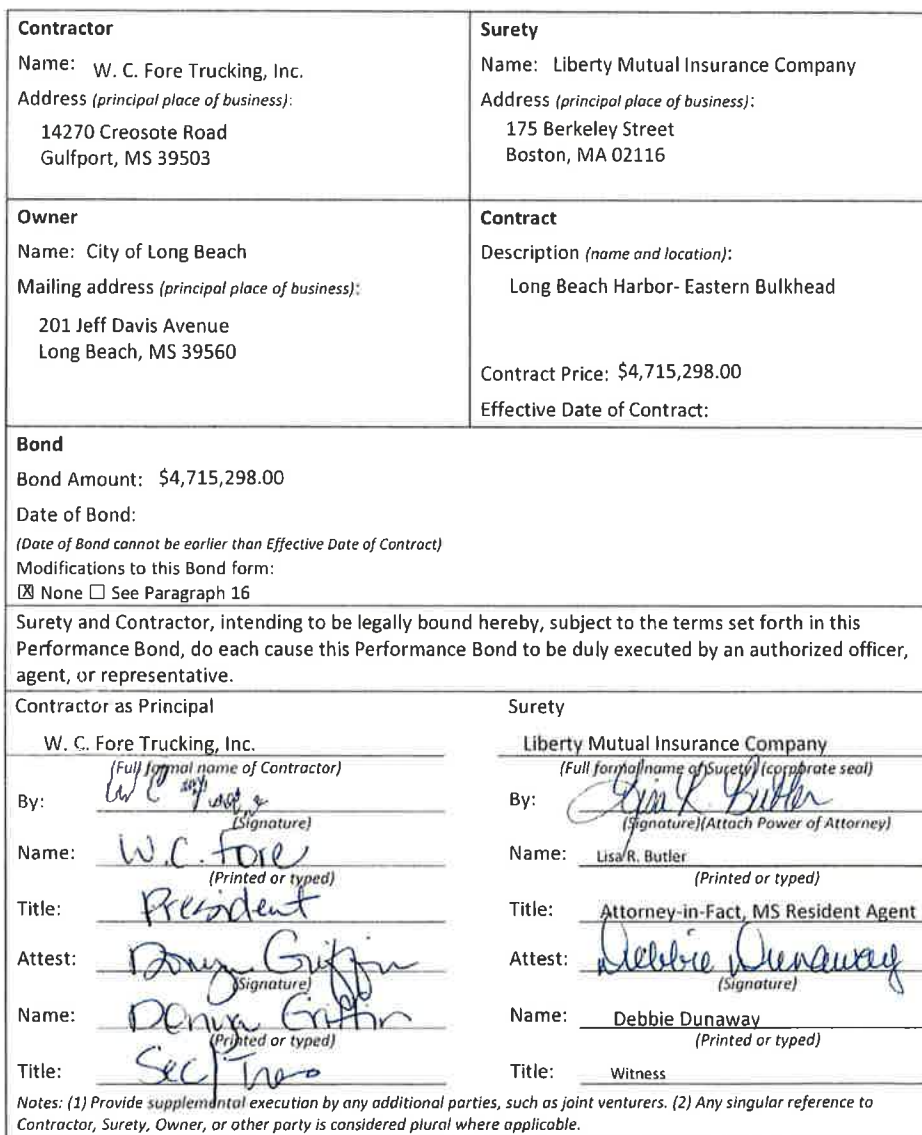 Contractor
Name: W. C. Fore Trucking, Inc.
Address (principal place of business):
14270 Creosote Road
Gulfport, MS 39503
Surety
Name: Liberty Mutual Insurance Company
Address (principal place of business):
175 Berkeley Street
Boston, MA 02116
Owner
Name: City of Long Beach
Mailing address (principal place of business):
201 Jeff Davis Avenue
Long Beach, MS 39560
Contract
Description (name and location):
Long Beach Harbor- Eastern Bulkhead
Contract Price: $4,715,298.00
Effective Date of Contract:
Bond
Bond Amount: $4,715,298.00
Date of Bond:
(Date of Bond cannot be earlier than Effective Date of Contract)
Modifications to this Bond form:
☒ None ☐ See Paragraph 16
Surety and Contractor, intending to be legally bound hereby, subject to the terms set forth in this
Performance Bond, do each cause this Performance Bond to be duly executed by an authorized officer,
agent, or representative.
Contractor as Principal
W. C. Fore Trucking, Inc.
(Full formal name of Contractor)
By: W C
(Signature)
Name: W.C. Fore
(Printed or typed)
Title: President
Attest: Donya Griffin
(Signature)
Name: Donya Griffin
(Printed or typed)
Title: Sec/Treas
Surety
Liberty Mutual Insurance Company
(Full formal name of Surety) (corporate seal)
By: Lisa R. Butler
(Signature)(Attach Power of Attorney)
Name: Lisa R. Butler
(Printed or typed)
Title: Attorney-in-Fact, MS Resident Agent
Attest: Debbie Dunaway
(Signature)
Name: Debbie Dunaway
(Printed or typed)
Title: Witness
Notes: (1) Provide supplemental execution by any additional parties, such as joint venturers. (2) Any singular reference to
Contractor, Surety, Owner, or other party is considered plural where applicable.